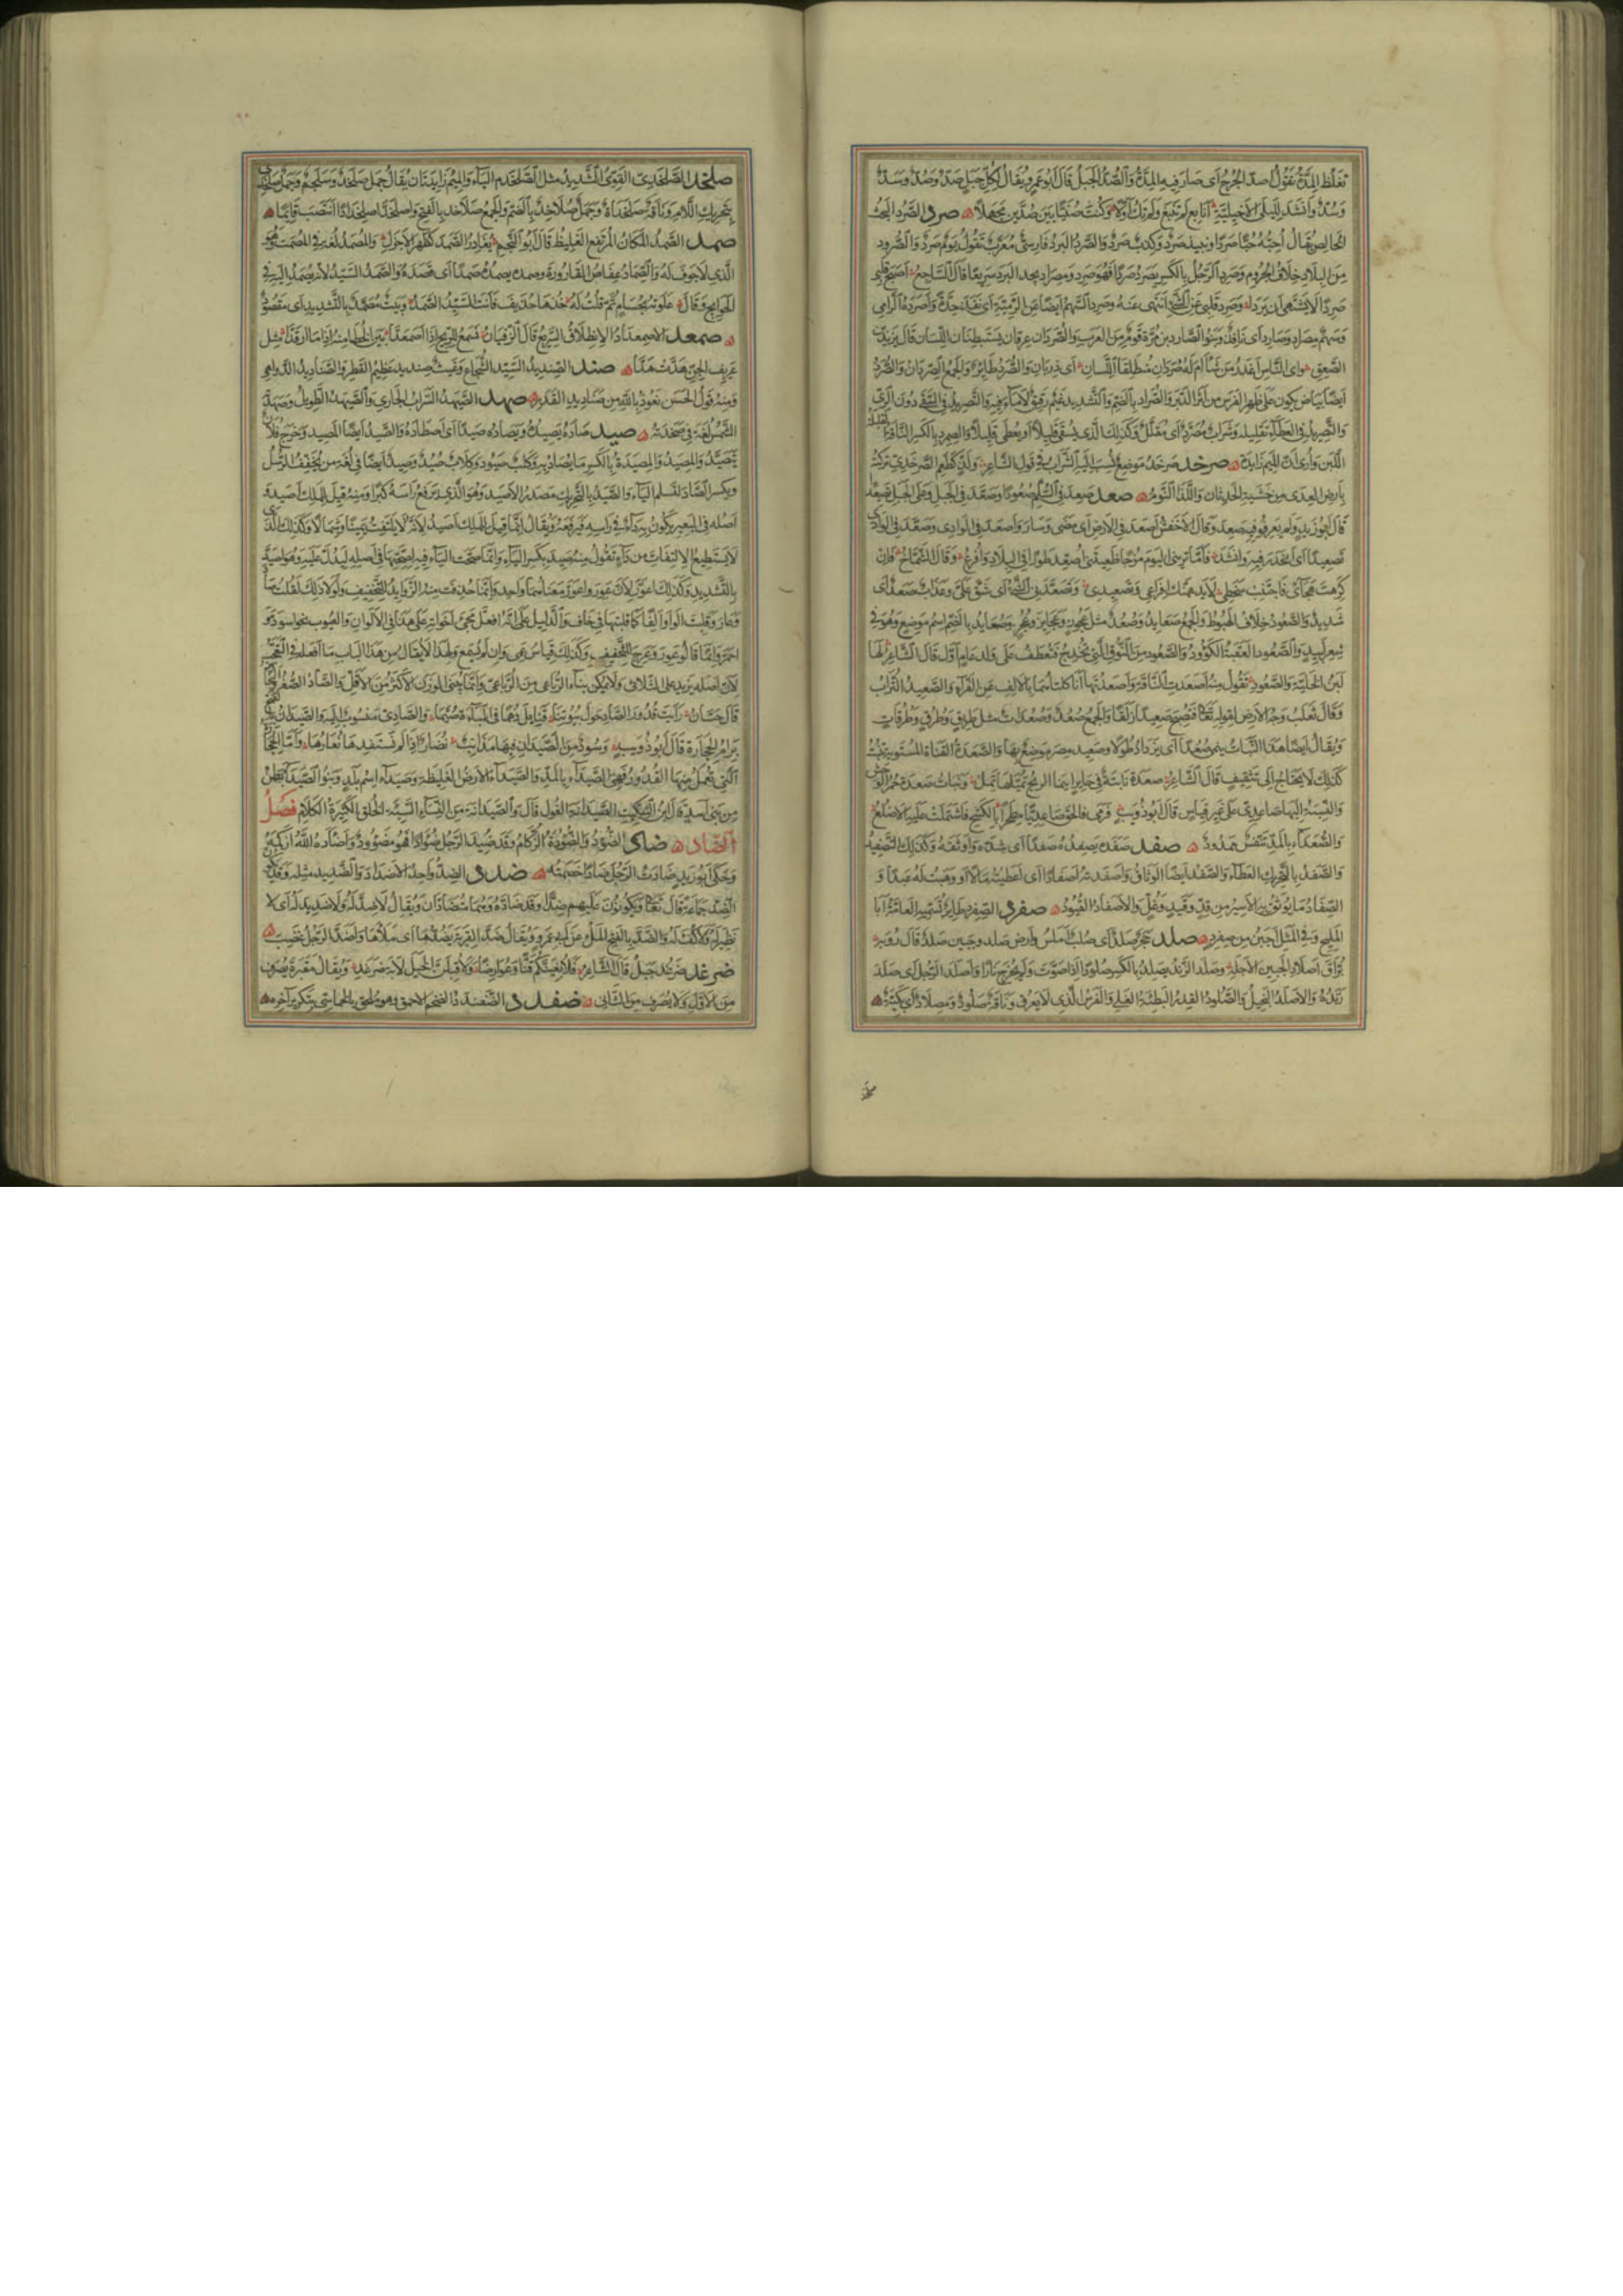 تغلظ المدة تقول اصد الجرح اى صار فيه المدة والصد الجبل قال ابو عمرو يقال لكل جبل صد وصد وسد
وسد وانشد لليلى الاخيلية انابغ لم تنبغ ولم تك اولا وكنت صنيا بين صدين مجهلا صرد الصرد البحت
الخالص يقال احبه حبا صردا ونبيذ صرد وكذب صرد والصرد البرد فارسى معرب تقول يوم صرد والصرود
من البلاد خلاف الجروم وصرد الرجل بالكسر يصرد صردا فهو صرد ومصراد يجد البرد سريعا قال الساجع اصبح قلبى
صردا لا يشتهى ان يردا وصرد قلبى عن الشئ انتهى عنه وصرد السهم ايضا عن الرمية اى نفذ حده واصرده الرامى
وسهم مصراد وصارد اى نافذ وبنو الصارد بن مرة قوم من العرب والصردان عرقان يستبطنان اللسان قال يزيد بن
الصعق واى الناس اعذر من شآم له صردان منطلقا اللسان اى ذربان والصرد طائر والجمع الصردان والصرد
ايضا بياض يكون على ظهر الفرس من اثر الدبر والصراد بالضم والتشديد غيم رقيق لا ماء فيه والتصريد فى السقى دون الرى
والتصريد فى العطاء تقليله وشراب مصرد اى مقلل وكذلك الذى يسقى قليلا او يعطى قليلا والصمرد بالكسر الناقة القليلة
اللبن وارى ان الميم زايدة صرخد صرخد موضع نسب اليه الشراب فى قول الشاعر ولذ كطعم الصرخدى تركته
بارض العدى من خشية الحدثان واللذ النوم صعد صعد فى السلم صعودا وصعد فى الجبل وعلى الجبل تصعيدا
قال ابو زيد ولم يعرفوا فيه صعد وقال الاخفش اصعد فى الارض اى مضى وسار واصعد فى الوادى وصعد فى الوادى
تصعيدا اى انحدر فيه وانشد فاما ترينى اليوم مزجى ظعينتى اصعد طورا فى البلاد وافرع وقال الشماخ فان
كرهت هجائى فاجتنب سخطى لا يدهمنك افراعى وتصعيدى وتصعدنى الشئ اى شق على وعذاب صعد اى
شديد والصعود خلاف الهبوط والجمع صعايد وصعد مثل عجوز وعجايز وعجز وصعايد بالضم اسم موضع وهو فى
شعر لبيد والصعود العقبة الكؤود والصعود من النوق التى تخدج فتعطف على ولد عام اول قال الشاعر لها
لبن الخلية والصعود تقول منه اصعدت الناقة واصعدتها انا كلتاهما بالالف عن الفراء والصعيد التراب
وقال ثعلب وجه الارض لقوله تعالى فتصبح صعيدا زلقا والجمع صعد وصعدات مثل طريق وطرق وطرقات
ويقال ايضا هذا النبات ينمى صعدا اى يزداد طولا وصعيد مصر موضع بها والصعدة القناة المستوية تنبت
كذلك لا تحتاج الى تثقيف قال الشاعر صعدة نابتة فى حاير اينما الريح تميلها تمل وبنات صعدة حمر الوحش
والنسبة اليها صاعدى على غير قياس قال ابو ذؤيب فرمى فالحق صاعديا مطحرا بالكشح فاشتملت عليه الاضلع
والصعداء بالمد تنفس ممدود صفد صفده يصفده صفدا اى شده واوثقه وكذلك التصفيد
والصفد بالتحريك العطاء والصفد ايضا الوثاق واصفدته اصفادا اى اعطيته مالا او وهبت له عبدا و
الصفاد ما يوثق به الاسير من قد وقيد وغل والاصفاد القيود صفرد الصفرد طاير تسميه العامة ابا
المليح وفى المثل اجبن من صفرد صلد حجر صلد اى صلب املس وارض صلد وجبين صلد قال رؤبة
براق اصلاد الجبين الاجله وصلد الزند يصلد بالكسر صلودا اذا صوت ولم يخرج نارا واصلد الرجل اى صلد
زنده والاصلد البخيل والصلود القدر البطيئة الغلى والفرس الذى لا يعرق وناقة صلود ومصلاد اى بكيئة
صلخد الصلخدى القوى الشديد مثل الصلخدم الياء والميم زايدتان يقال جمل صلخد وسلجم وجمل صلخد
بتحريك اللام وناقة صلخداة وجمل صلاخد بالضم والجمع صلاخد بالفتح واصلخد اصلخدادا انتصب قائما
صمد الصمد المكان المرتفع الغليظ قال ابو النجم يغادر الصمد كظهر الاجزل والمصمد لغة فى المصمت وهو
الذى لا جوف له والصماد عفاص القارورة وصمده يصمده صمدا اى قصده والصمد السيد لانه يصمد اليه فى
الحوايج وقال علوته بحسام ثم قلت له خذها حذيف فانت السيد الصمد وبيت مصمد بالتشديد اى مقصود
صمعد الاصمعداد الانطلاق السريع قال الزفيان تسمع للريح اذا اصمعدا بين الخطا منه اذا ما ارقدا مثل
عزيف الجن هدت هدا صند الصنديد السيد الشجاع وغيث صنديد عظيم القطر والصناديد الدواهى
ومنه قول الحسن نعوذ بالله من صناديد القدر صهد الصيهد السراب الجارى والصيهد الطويل وصهدته
الشمس لغة فى صخدته صيد صاده يصيده ويصاده صيدا اى اصطاده والصيد ايضا المصيد وخرج فلان
يتصيد والمصيد والمصيدة بالكسر ما يصاد به وكلب صيود وكلاب صيد وصيد ايضا فى لغة من يخفف الرسل
ويكسر الصاد لتسلم الياء والصيد بالتحريك مصدر الاصيد وهو الذى يرفع راسه كبرا ومنه قيل للملك اصيد و
اصله فى البعير يكون به داء فى راسه فيرفعه ويقال انما قيل للملك اصيد لانه لا يلتفت يمينا وشمالا وكذلك الذى
لا يستطيع الالتفات من داء تقول منه صيد بكسر الياء وانما صحت الياء فيه لصحتها فى اصله ليدل عليه وهو اصيد
بالتشديد وكذلك اعور لان عور واعور معناهما واحد وانما حذفت منه الزوايد للتخفيف ولولا ذلك لقلت صاد
وعار وقلبت الواو الفا كما قلبتها فى خاف والدليل على انه افعل مجئ اخواته على هذا فى الالوان والعيوب نحو اسود و
احمر وانما قالوا عور وعرج للتخفيف وكذلك قياس عمى وان لم يسمع ولهذا لا يقال من هذا الباب ما افعله فى التعجب
لان اصله يزيد على الثلاثى ولا يمكن بناء الرباعى من الرباعى وانما يبنى الوزن الاكثر من الاقل والصاد الصفر
قال حسان رايت قدور الصاد حول بيوتنا قنابل دهما فى المباءة صيما والصادى منسوب اليه والصيدان
برام الحجارة قال ابو ذؤيب وسود من الصيدان فيها مذانب نضار اذا لم نستفدها نعارها واما الحجارة
التى تعمل منها القدور فهى الصيداء بالمد والصيداء الارض الغليظة وصيداء اسم بلد وبنو الصيداء بطن
من بنى اسد قال ابن السكيت الصيدانة الغول قال والصيدانة من النساء السيئة الخلق الكثيرة الكلام فصل
الضاد ضاد الضؤد والضؤدة الزكام وقد ضئد الرجل ضؤادا فهو مضؤود واضاده الله ازكمه
وحكى ابو زيد ضادت الرجل ضادا خصمته ضدد الضد واحد الاضداد والضديد مثله وقد يكون
الضد جماعة قال تعالى ويكونون عليهم ضدا وقد ضاده وهما متضادان ويقال لا ضد له ولا ضديد له اى لا
نظير له ولا كفء له والضد بالفتح الملء عن ابى عمرو ويقال ضد القربة يضدها اى ملأها واضد الرجل غضب
ضرغد ضرغد جبل قال الشاعر فلابغينكم قنا وعوارضا ولاقبلن الخيل لابة ضرغد ويقال مقبرة يصرف
من الاول ولا يصرف من الثانى ضفند الضفندد الضخم الاحمق وهو ملحق بالخماسى بتكرير آخره